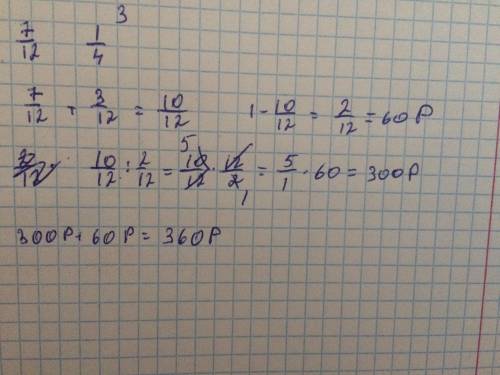 7/12 1/4 3
7/12 + 3/12 = 10/12 1 - 10/12 = 2/12 = 60 Р
10/12 : 2/12 = 10/12 · 12/2 = 5/1 · 60 = 300 Р
300 Р + 60 Р = 360 Р